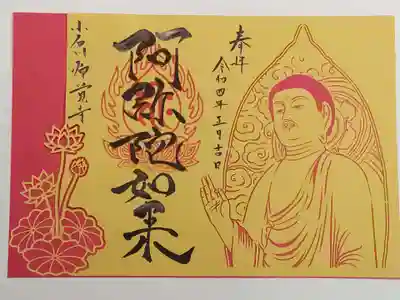 奉拝
令和四年五月吉日
阿弥陀如来
小石川源覚寺